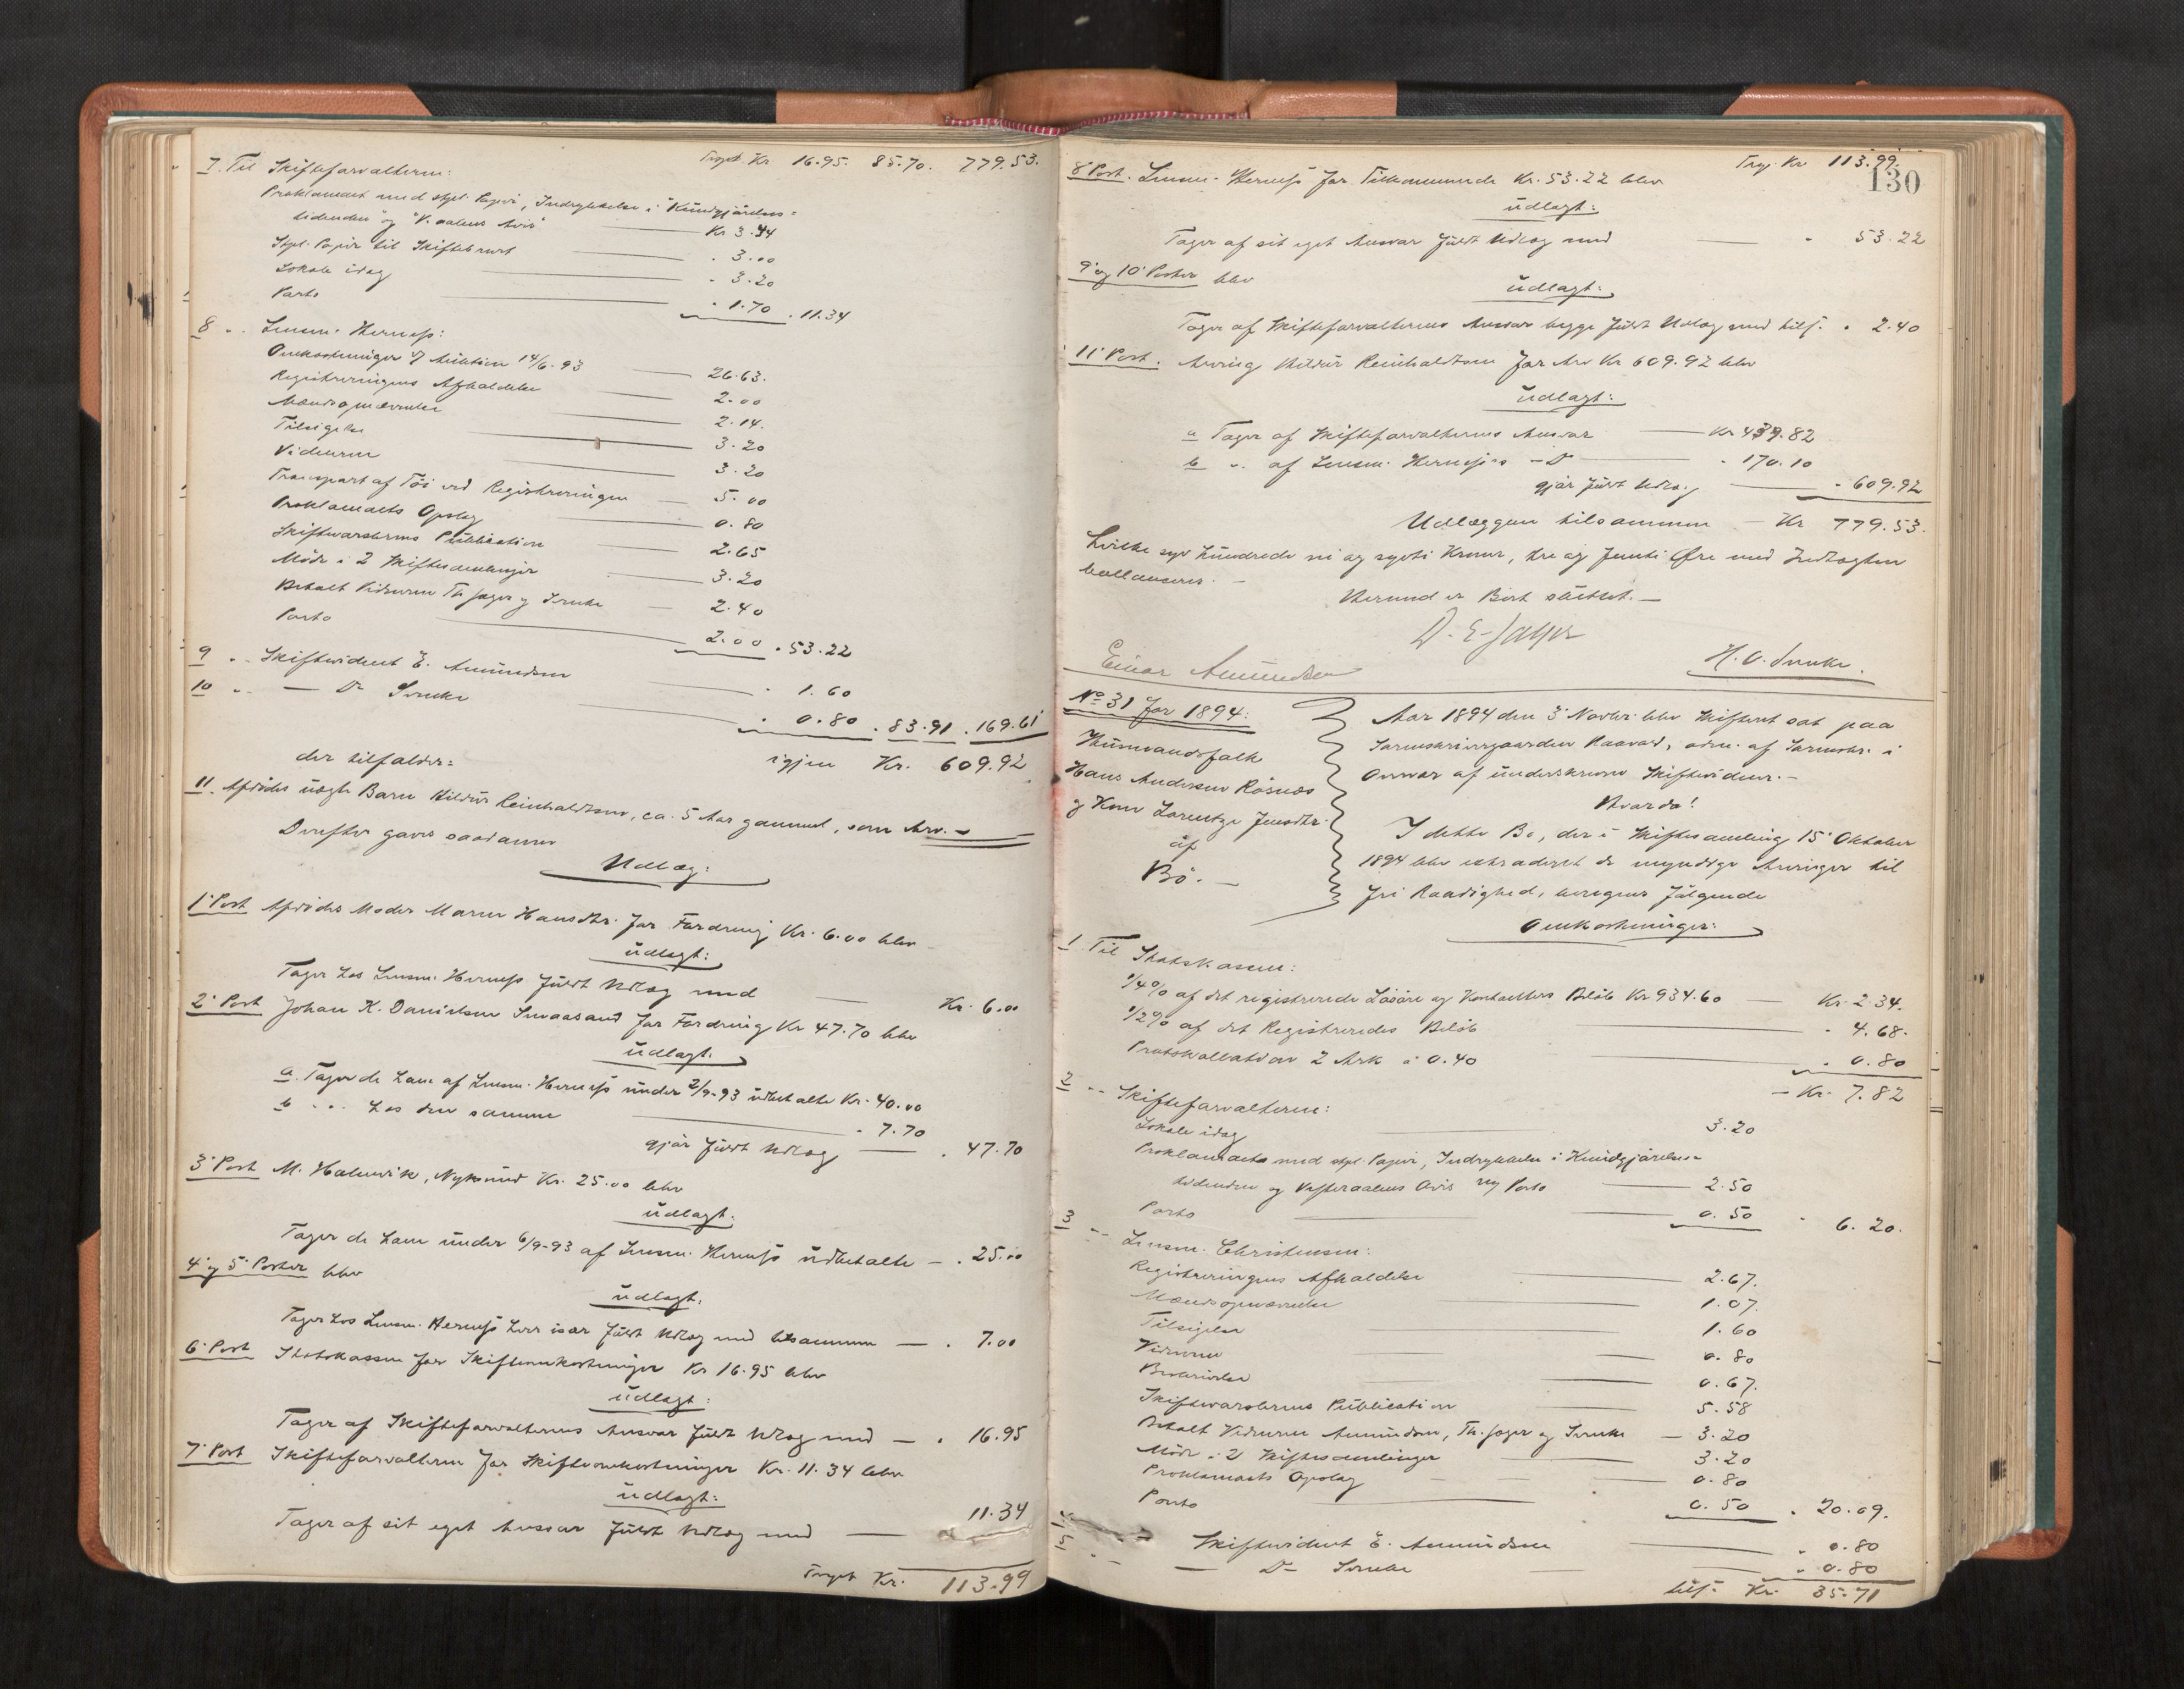 Trspt. Kr 16.95. 85.70. 779.53.
7. Til Skifteforvalteren:
Proklamaet med stpl. Papir, Indrykkelse i "Kundgjørelses=
tidenden" og "V.aalens Avis" Kr 3.44
Stpl. Papir til Skiftebrevet . 3.00
Lokale idag . 3.20
Porto . 1.70 . 11.34
8 " . Lensm. Herness:
Omkostninger v/ Auktion 14/6-93 26.63.
Registreringens Afholdelse 2.00
Mændsopnævnelse 2.14.
Tilsigelse 3.20
Vidnerne 3.20
Transport af Tøi ved Registreringen 5.00
Proklamaets Opslag 0.80
Skiftevarslernes Publication 2.65
Møde i 2 Skiftesamlinger 3.20
Betalt Vidnerne Th. Jager og Sencke 2.40
Porto 2.00 . 53.22
9 " . Skiftevidnet E. Amundsen . 1.60
10 " . — Do . 0.80 . 83.91 . 169.61
igjen Kr. 609.92
der tilfalder:
11. Afdødes uægte Barn Hildur Reinholdtsen, ca. 5 Aar gammel, som Arv. —
Derefter gaves saadanne
Udlæg:
1' Post Afdødes Moder Maren Hansdtr. for Fordring Kr. 6.00 blev
udlagt:
Tages hos Lensm. Herness fuldt Udlæg med Kr. 6.00
2' Post Johan K. Danielsen for Fordring Kr 47.70 blev
udlagt:
a. Tages de ham af Lensm. Herness under 2/9-93 udbetalte Kr. 40.00
b " . hos den samme . 7.70
gjør fuldt Udlæg . 47.70
3' Post M. Halmvik, Nyksund Kr. 25.00 blev
udlagt:
Tages de ham under 6/9-93 af Lensm. Herness udbetalte — . 25.00
4' og 5' Poster blev
udlagt:
Tages hos Lensm. Herness hver især fuldt Udlæg med tilsammen — . 7.00
6' Post Statskassen for Skifteomkostninger Kr 16.95 blev
udlagt:
Tages af Skifteforvalterens Ansvar fuldt Udlæg med — . 16.95
7' Post Skifteforvalteren for Skifteomkostninger Kr. 11.34 blev
udlagt:
Tages af sit eget Ansvar fuldt Udlæg med 11.34
Trspt Kr. 113.99
Trsp. Kr 113.99.
130
8' Post. Lensm. Herness for Tilkommende Kr. 53.22 blev
udlagt:
Tages af sit eget Ansvar fuldt Udlæg med . 53.22
9' og 10' Poster blev
udlagt:
Tages af Skifteforvalterens Ansvar begge fuldt Udlæg med tils. . 2.40
11' Post. Arving Hildur Reinholdtsen for Arv Kr 609.92 blev
udlagt:
a Tages af Skifteforvalterens Ansvar Kr 439.82
b " . af Lensm. Hernesses - Do . 170.10
gjør fuldt Udlæg . 609.92
Udlæggene tilsammen — Kr 779.53.
hvilke syv hundrede ni og sytti Kroner, tre og femti Øre med Indtægten
ballancerer. —
Hermed er Boet sluttet. —
Einar Amundsen
No 31 for 1894.
Husmandsfolk
Hans Andersen Røsnæs
og Kone Lorentze Jensdtr.
af
Bø. —
Aar 1894 den 3' Novbr. blev Skifteret sat paa
Sorenskrivergaarden Raavold, adm. af Sorenskr. i
Overvær af underskrevne Skiftevidner. —
Hvorda!
I dette Bo, der i Skiftesamling 15' Oktober
1894 blev extraderet de myndige Arvinger til
fri Raadighed, beregnes følgende
Omkostninger:
1 Til Statskassen:
1/4 % af det registrerede Løsøre og Kontanters Beløb Kr 934.60 — Kr. 2.34.
1/2 % af det Registreredes Beløb . 4.68.
Protokollation 2 Ark à 0.40 . 0.80
— Kr. 7.82
2 " . Skifteforvalteren:
Lokale idag 3.20
Proklamaet med stpl. Papir, Indrykkelse i Kundgjørelses=
tidenden og Vesteraalens Avis og Porto 2.50
Porto 0.50 . 6.20.
3 " . Lensm. Christensen:
Registreringens Afholdelse 2.67.
Mændsopnævnelse 1.07.
Tilsigelse 1.60
Vidnerne 0.80
Beskrivelse 0.67.
Skiftevarslernes Publication 5.58
Betalt Vidnerne Amundsen, Th. Jager og Sencke — 3.20
Møde i 2 Skiftesamlinger 3.20
Proklamaets Opslag 0.80
Porto 0.50 . 20.09.
Skiftevidnet E. Amundsen . 0.80
5 " . — Do . 0.80
tils. Kr. 35.71